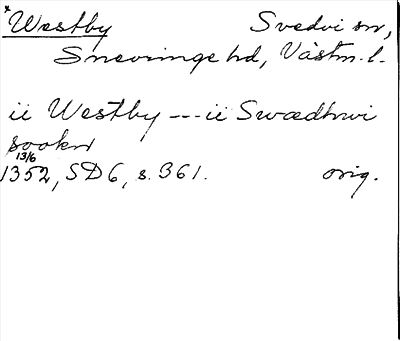 × Westby Svedvi sn,
Snevringe hd, Västm. l.
ii Westby --- ii Swædhwi
sookn
13/6
1352, SD 6, s. 361. orig.